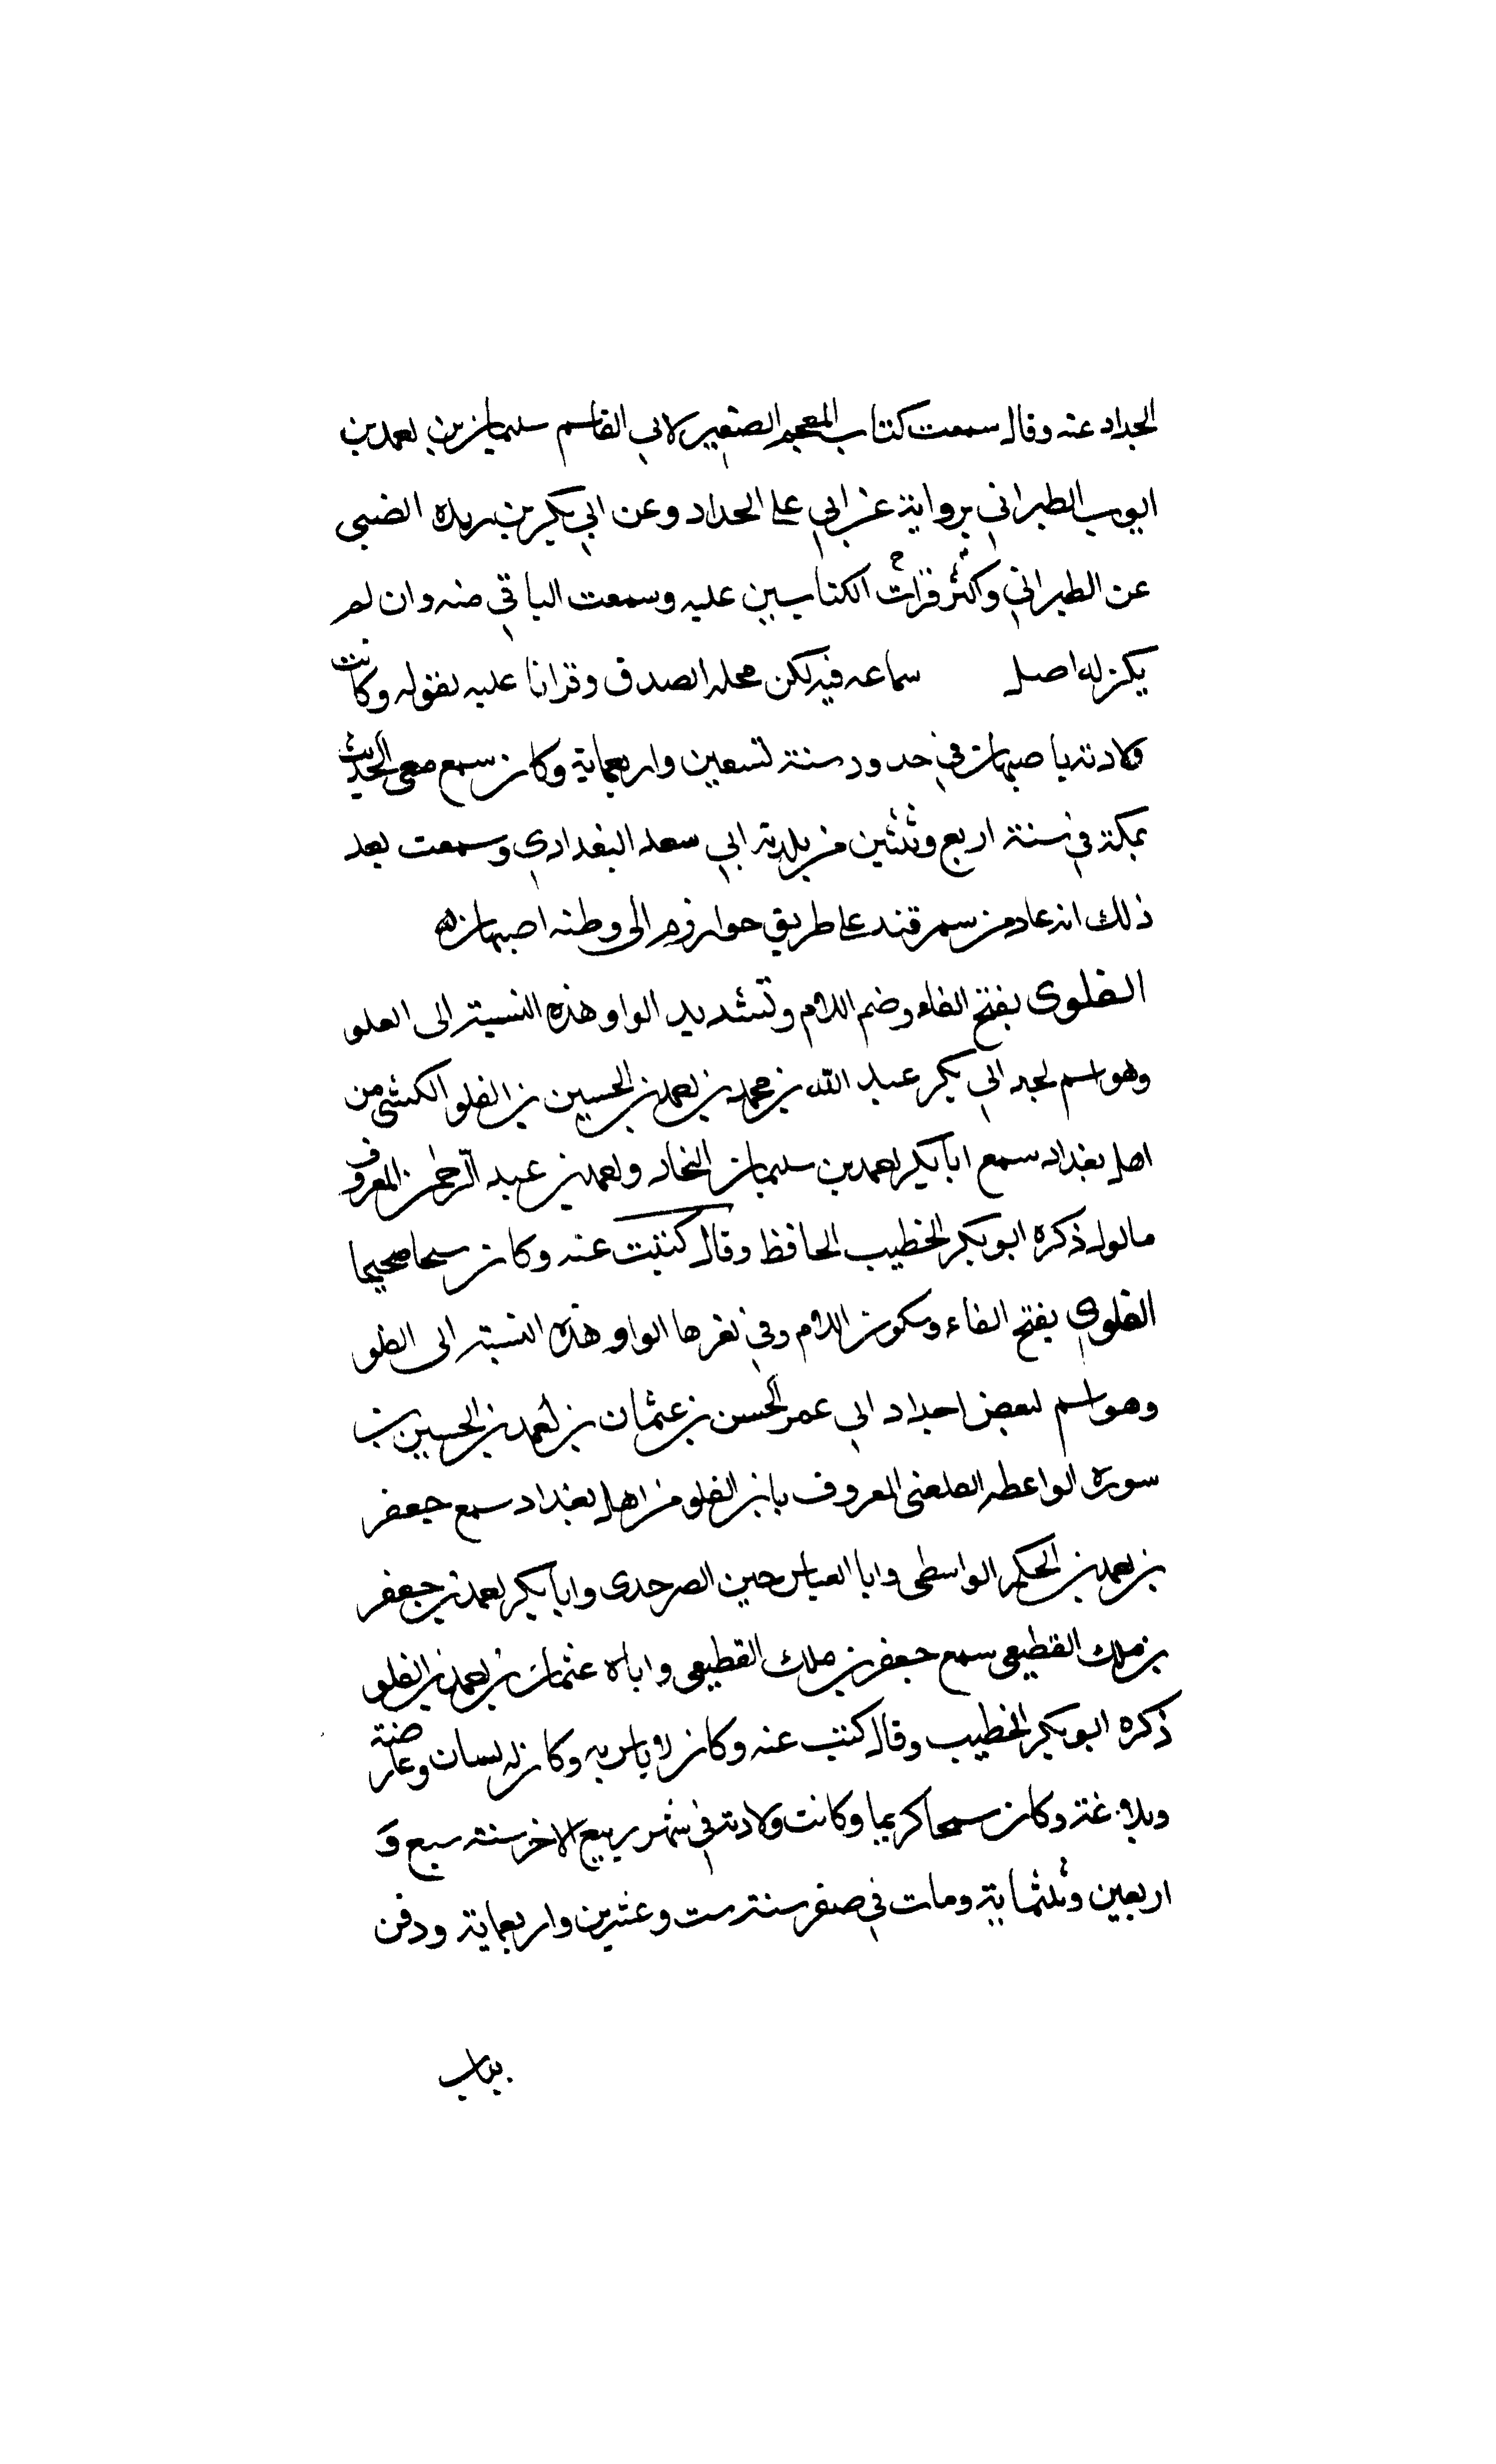 الحداد عنه وقال سمعت كتاب المعجم الصغير لابي القاسم سليمان بن احمد بن
ايوب الطبراني برواية عن ابي علي الحداد وعن ابي بكر بن ريده الضبي
عن الطبراني واكثر قرات الكتابين عليه وسمعت الباقي منه وان لم
يكن له اصل سماعه فيه لكن محله الصدق وقرانا عليه بقوله وكانت
ولادته باصبهان في حدود سنة تسعين واربعماية وكان سمع معي الحديث
بمكة في سنة اربع وثلثين من بلديه ابي سعد البغدادي وسمعت بعد
ذلك انه عاد من سمرقند على طريق خوارزم الى وطنه اصبهان ه
الفلوى بفتح الفاء وضم اللام وتشديد الواو هذه النسبة الى الفلو
وهو اسم لجد ابي بكر عبد الله بن محمد بن احمد بن الحسين بن الفلو الكتبي من
اهل بغداد سمع ابا بكر احمد بن سليمان النجاد واحمد بن عبد الرحمن المعروف
بالولي ذكره ابو بكر الخطيب الحافظ وقال كتبت عنه وكان سمحا صحيحا
الفلوي بفتح الفاء وسكون اللام وفي اخرها الواو هذه النسبة الى الفلو
وهو اسم لبعض اجداد ابي عمر الحسن بن عثمان بن احمد بن الحسين بن
سورة الواعظ الفلعى المعروف بابن الفلو من اهل بغداد سمع جعفر
بن احمد بن الحكم الواسطي وابا العباس الصرحدى وابا بكر احمد بن جعفر
بن ملك القطيعي سمع جعفر بن ملك القطيعي واباه عثمان بن احمد بن الفلو
ذكره ابو بكر الخطيب وقال كتبت عنه وكان لا باس به وكان له لسان وعارضة
وبلاغة وكان سمحا كريما وكانت ولادته في شهر ربيع الاخر سنة سبع و
اربعين وثلثماية ومات في صفر سنة ست وعشرين واربعماية ودفن
بباب